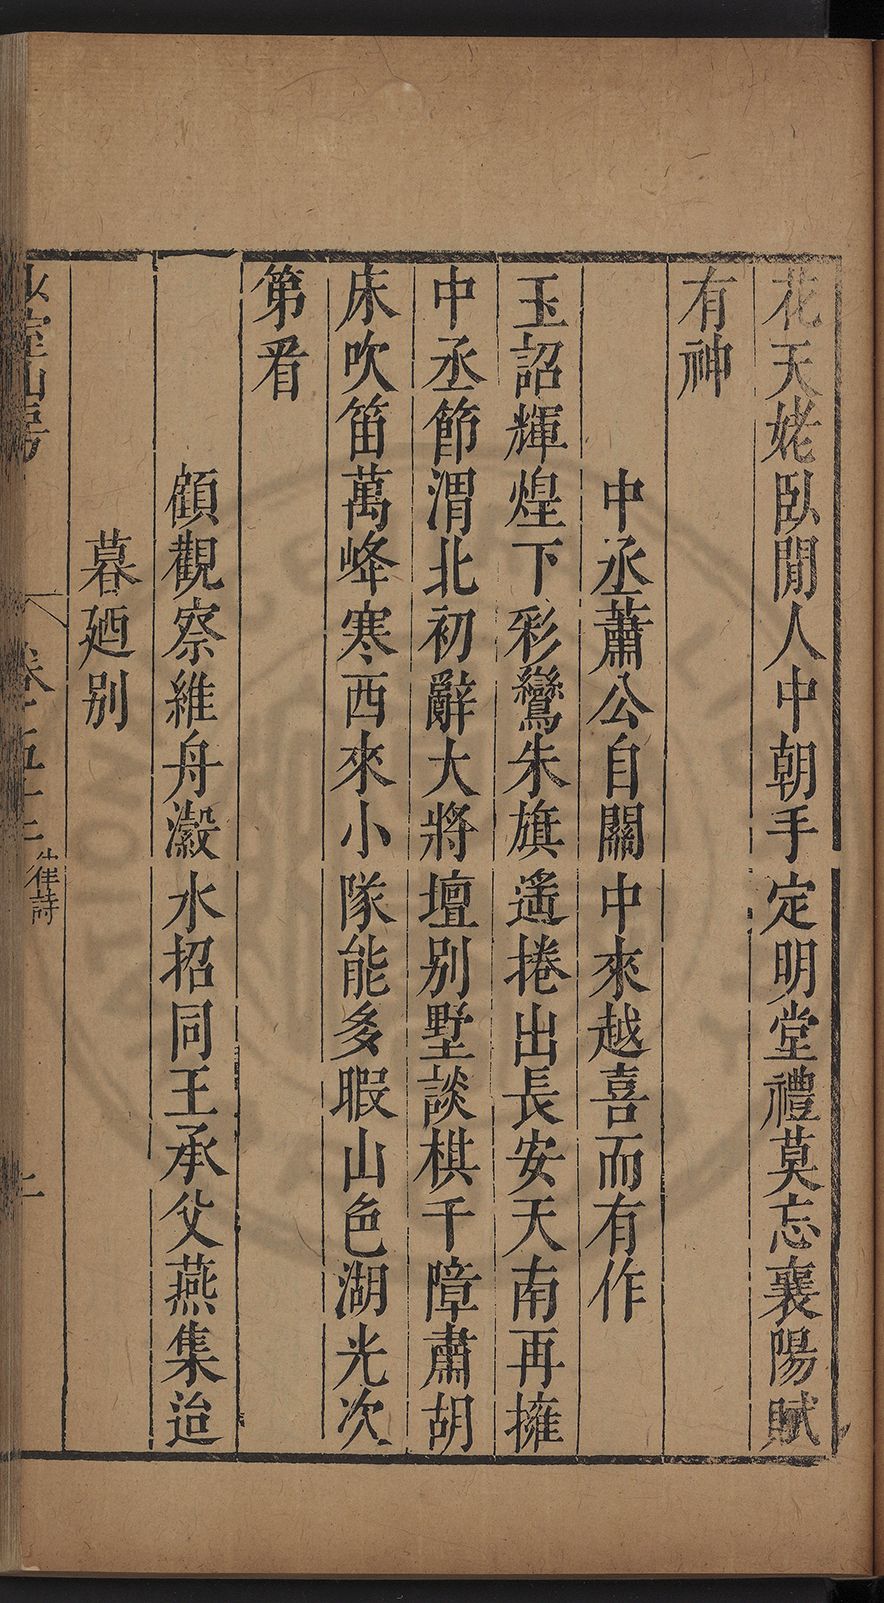 花天姥臥閒人中朝手定明堂禮莫忘襄陽賦
有神
中丞蕭公自關中來越喜而有作
玉詔輝煌下彩鸞朱旗遙捲出長安天南再擁
中丞節渭北初辭大將壇別墅談棋千障肅胡
床吹笛萬峰寒西來小隊能多暇山色湖光次
第看
顧觀察維舟瀫水招同王承父燕集迨
暮廼別
少室山房
卷之五十三 律詩